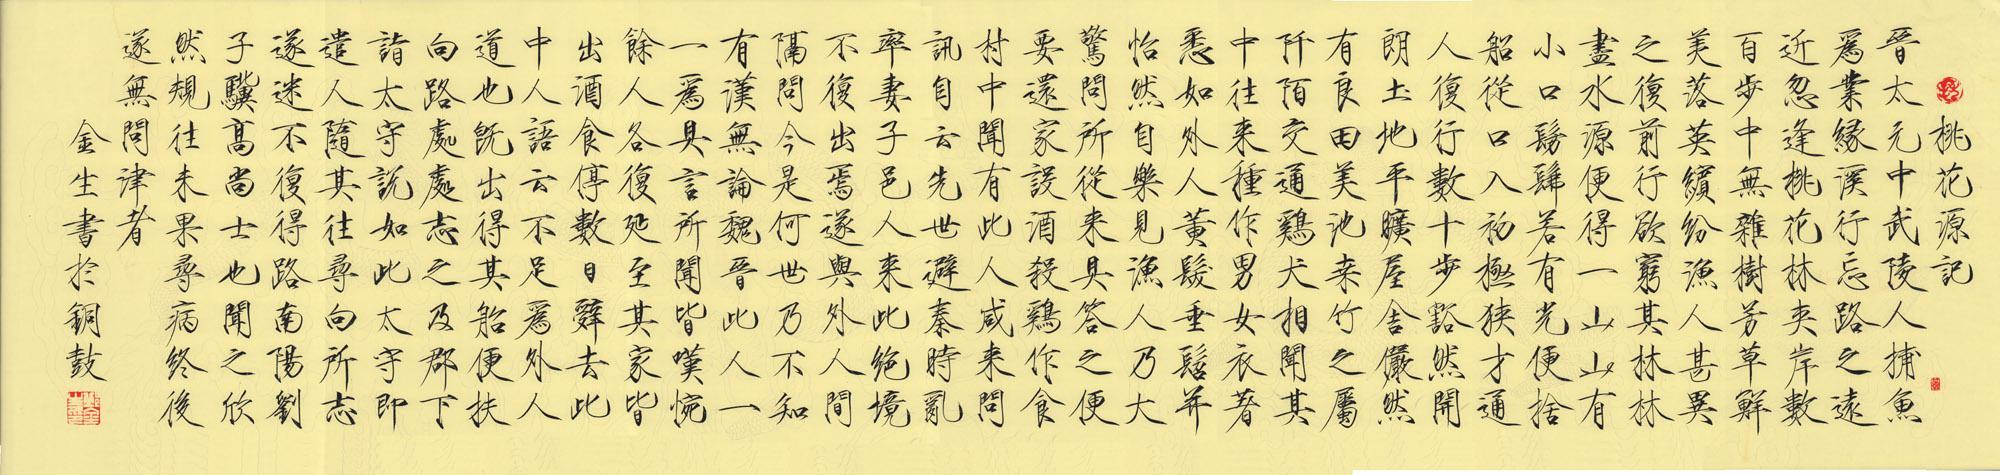 桃花源記
晉太元中武陵人捕魚
爲業緣溪行忘路之遠
近忽逢桃花林夾岸數
百步中無雜樹芳草鮮
美落英繽紛漁人甚異
之復前行欲窮其林林
盡水源便得一山山有
小口髣髴若有光便捨
船從口入初極狹才通
人復行數十步豁然開
朗土地平曠屋舍儼然
有良田美池桑竹之屬
阡陌交通鷄犬相聞其
中往来種作男女衣著
悉如外人黃髮垂髫并
怡然自樂見漁人乃大
驚問所從来具答之便
要還家設酒殺鷄作食
村中聞有此人咸来問
訊自云先世避秦時亂
率妻子邑人来此絶境
不復出焉遂與外人間
隔問今是何世乃不知
有漢無論魏晉此人一
一爲具言所聞皆嘆惋
餘人各復延至其家皆
出酒食停數日辭去此
中人語云不足爲外人
道也既出得其船便扶
向路處處志之及郡下
詣太守説如此太守即
遣人隨其往尋向所志
遂迷不復得路南陽劉
子驥高尚士也聞之欣
然規往未果尋病終後
遂無問津者
金生書於銅鼓